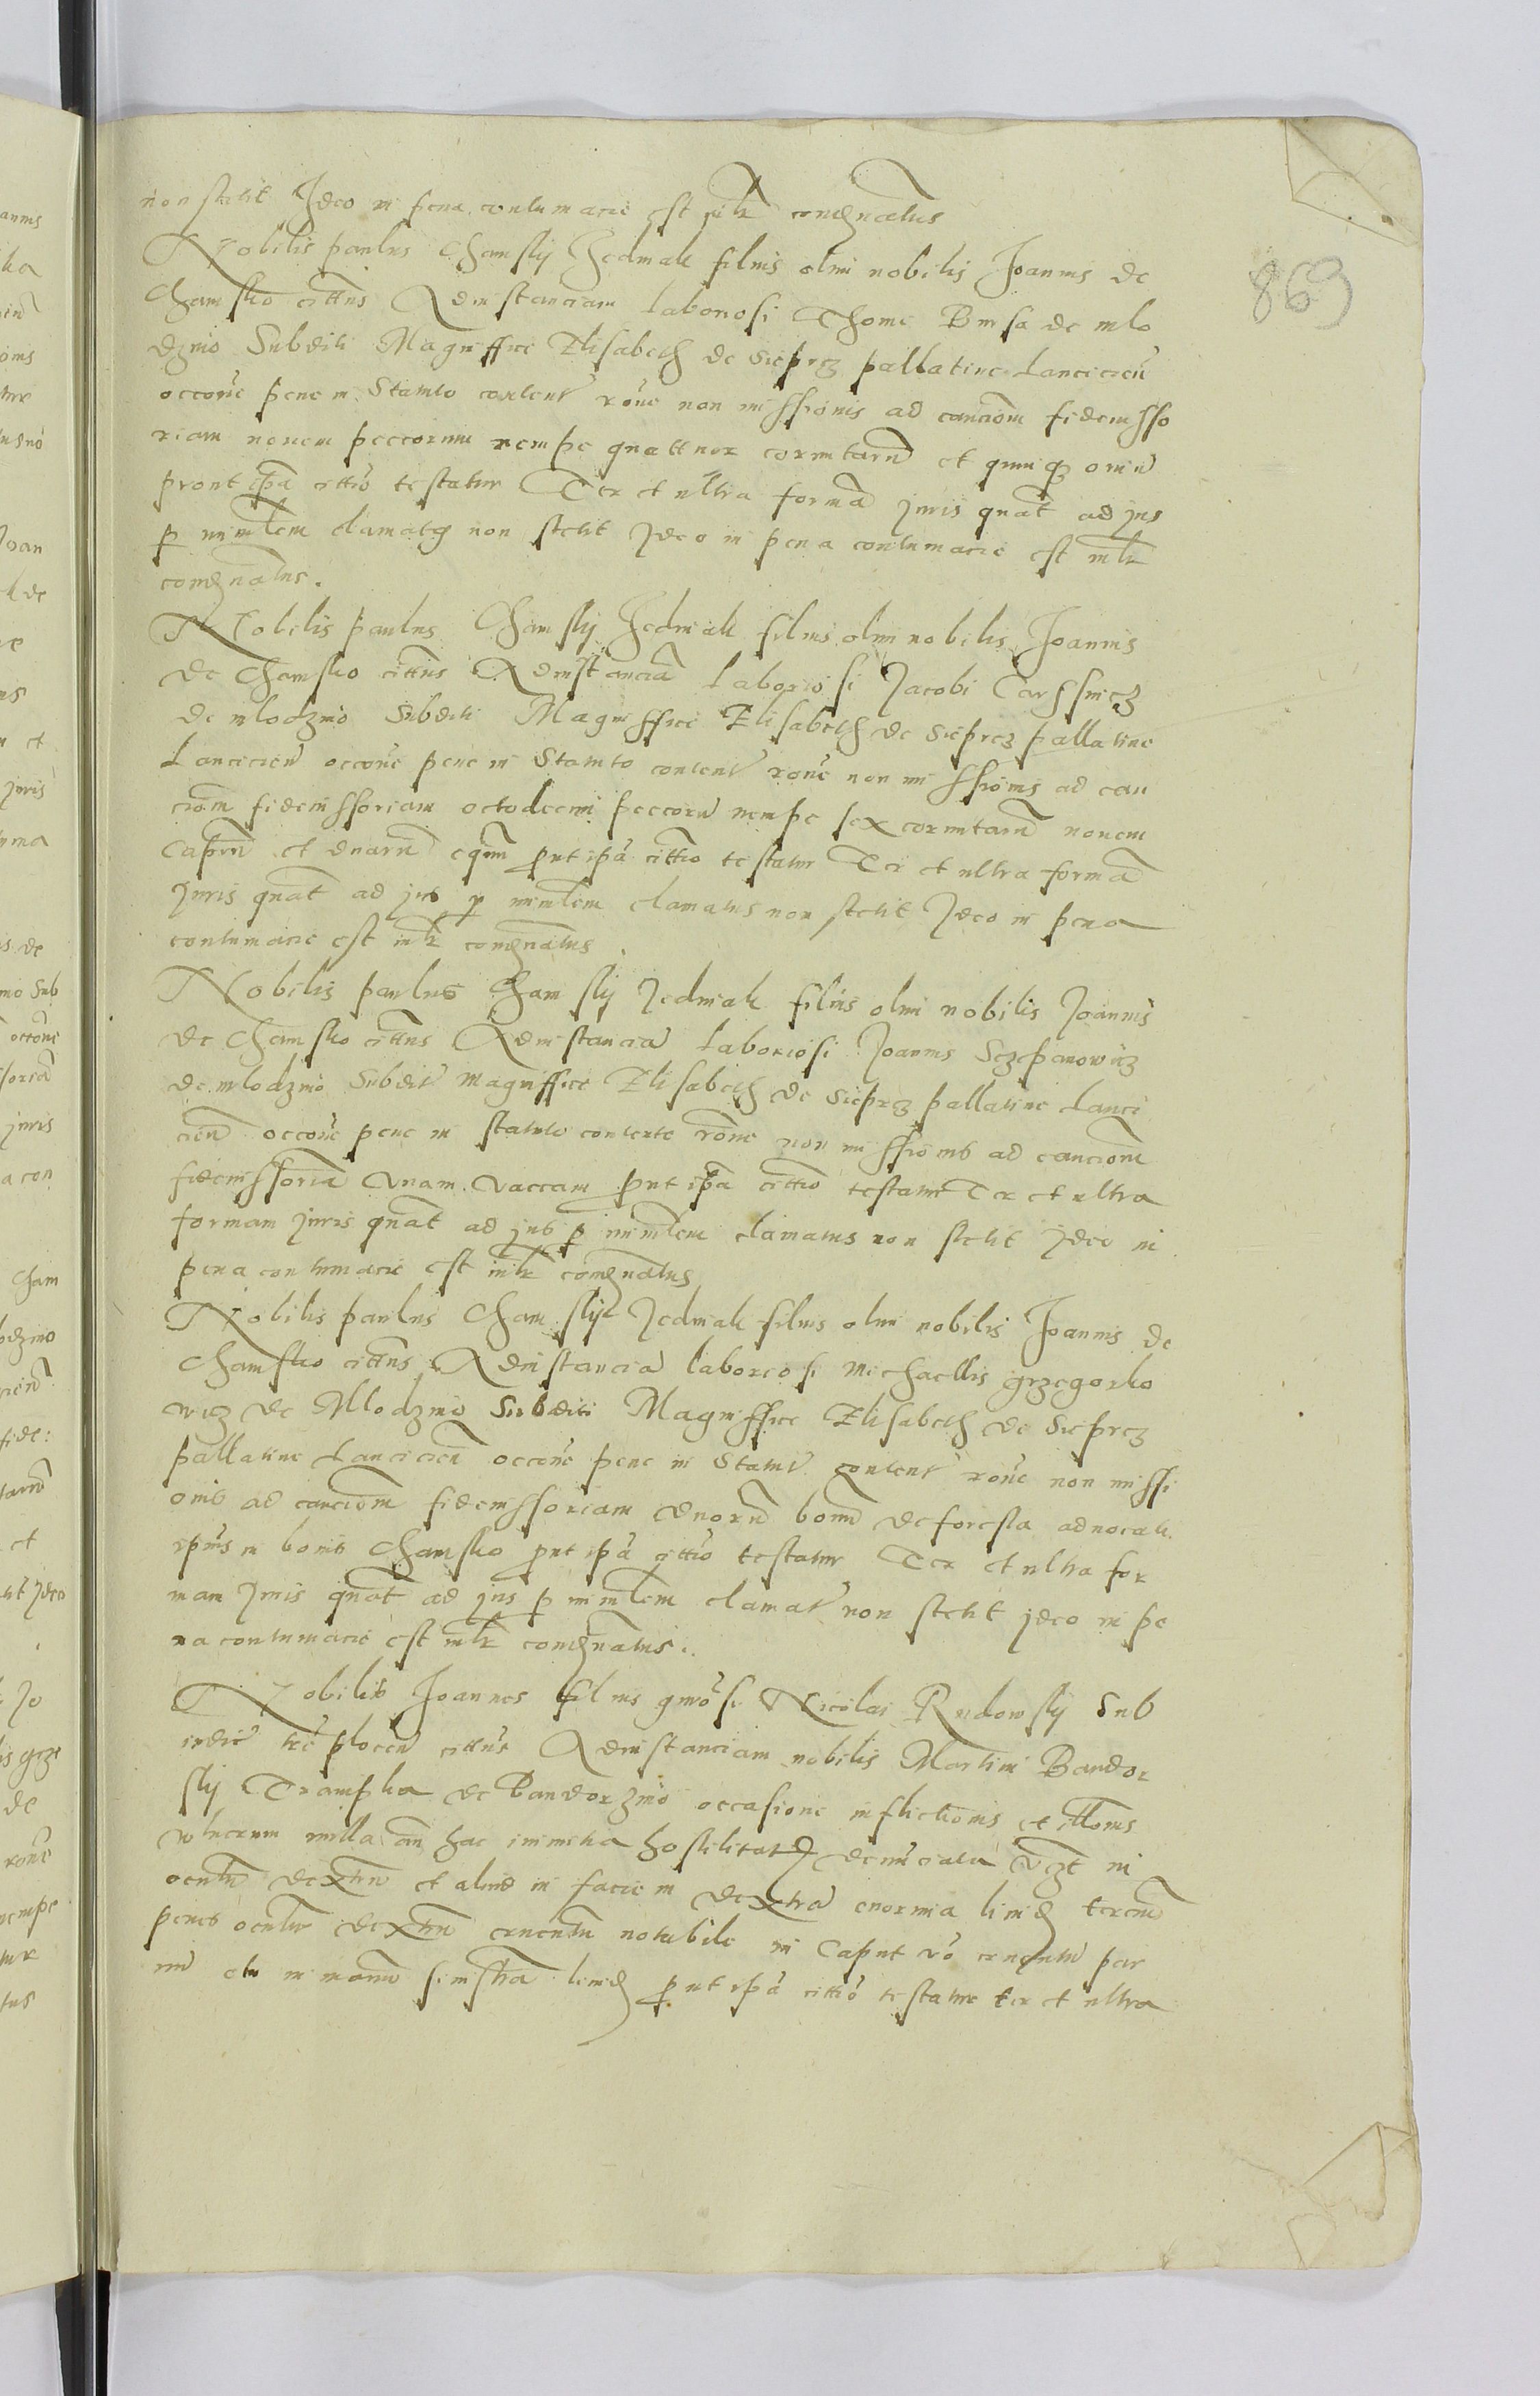 non stetit Ideo in pena contumacie est iudr condenatus
869
Nobilis paulus Chamskij Jedmak filius olim nobilis Joannis de
Chamsko cittus Ad instanciam laboriosi Thome Bursa de mlo
dzino Subditi Magniffice Elisabeth de Sieprcz pallatine Lancicien
occone pene in Statuto content rone non missionis ad caucionem fideiusso
riam nouem peccorum nempe quattuor cornutaru et quinqz ouiu
prout ipa cittio testatur Ter et ultra forma Juris quat ad jus
p minrlem clamatq non stetit Ideo in pena contumacie est iudr
condenatus.
Nobilis paulus Chamskij Jedmak filius olim nobilis Joannis
de Chamsko cittus Ad instancia laboriosi Jacobi
de mlodzino Subditi Magniffice Elisabeth de Sieprcz pallatine
Lancicien occone pene in Statuto content rone non missionis ad cau
ciom fideiussoriam octodecim peccoru nempe sex cornutaru nouem
capru et duaru equm put ipa cittio testatur Ter et ultra forma
Juris quat ad jus p minrlem clamatus non stetit Ideo in pena
contumacie est iudr condenatus
Nobilis paulus Chamskij Jedmak filius olim nobilis Joannis
de Chamsko cittus Ad instancia laboriosi Joannis Sczepanowicz
de mlodzino Subdit magniffice Elisabeth de Sieprcz pallatine Lanci
cien occone pene in statuto contente rone non missionis ad caucionem
fideiussoria Vnam vaccam put ipa cittio testatur Ter et ultra
formam Juris quat ad jus p minrlem clamatus non stetit ideo in
pena contumacie est iudr condenatus
Nobilis paulus Chamskij Jedmak filius olim nobilis Joannis de
Chamsko cittus Ad instancia laboriosi Michaellis grzegorko
wicz de Mlodzino Subditi Magniffice Elisabeth de Sieprcz
pallatine Lancicien occone pene in Statut content rone non missi
onis ad cauciom fideiussoriam duoru boum de foresta aduocat
ipius in bonis Chamsko put ipa cittio testatur Ter et ultra for
mam Juris quat ad jus p minrlem clamat non stetit jdeo in pe
na contumacie est iudr condenatus.
Nobilis Joannes filius gnosi Nicolai Rudowskij Sub
iudic tre plocen cittus Ad instanciam nobilis Martini Bandor
skij Trampka de Bandorzino occasione inflictionis et illonis
vulnerum nulla cu hac inimicia hostilitate denuciata vzt in
oculu dextru et aliud in facie in dextra enormia liuid terciu
penes oculu dextru cruentu notabile in Caput vo cruentu par
uu in manu sinistra liuid put ipa cittio testatur ter et ultra